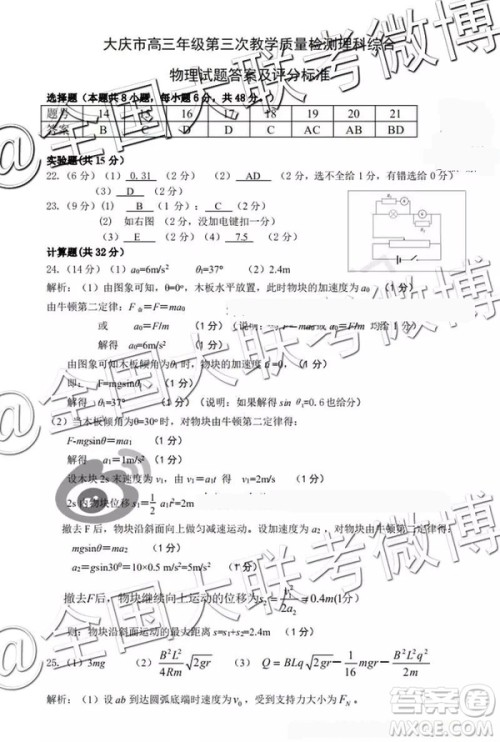 大庆市高三年级第三次教学质量检测理科综合
物理试题答案及评分标准
选择题（本题共8小题，每小题6分，共48分。）
题号 14 15 16 17 18 19 20 21
答案 B C D D C AC AB BD
实验题(共15分）
22.（6分）（1） 0.31 （2分）（2） AD （2分，选不全给1分，有错选给0分）
（3） D （2分）
23.（9分）（1） B （1分）； C （2分）
（2） 如右图 （2分，没加电键扣一分）
（3） E （2分）（4） 7.5 （2分）
计算题(共32分）
24.（14分）（1）a₀=6m/s² θ₁=37° （2）2.4m
解析：（1）由图象可知，θ=0°，木板水平放置，此时物块的加速度为a₀
由牛顿第二定律：F合=F=ma₀
或 a₀=F/m （1分）（说明：a₀=F/m 均给1分）
解得 a₀=6m/s² （1分）
由图象可知木板倾角为θ₁时，物块的加速度a=0，（1分）
即： F=mgsinθ₁ （1分）
解得 θ₁=37° （1分）（说明：如果解得 sinθ₁=0.6也扣分）
（2）当木板倾角为θ=30°时，对物块由牛顿第二定律得：
F-mgsinθ=ma₁ （1分）
解得 a₁=1m/s² （1分）
设木块2s末速度为v₁，由v₁=a₁t 得 v₁=2m/s （1分）
2s内物块位移s₁=1/2 a₁t²=2m
撤去F后，物块沿斜面向上做匀减速运动。设加速度为a₂，对物块由牛顿第二定律得：
mgsinθ=ma₂ （1分）
a₂=gsin30°=10×0.5 m/s²=5m/s² （1分）
撤去F后，物块继续向上运动的位移为 s₂=v₁²/2a₂=0.4m(1分）
则：物块沿斜面运动的距离 s=s₁+s₂=2.4m （1分）
25.（1）3mg （2）B²L²/4Rm √2gr （3） Q=BLq√2gr−1/16 mgr−B²L²q²/2m
解析：（1）设ab到达圆弧底端时速度为v₀，受到支持力大小为F_N。
@全国大联考微博
@全国大联考微博
@全国大联考微博
答案圈